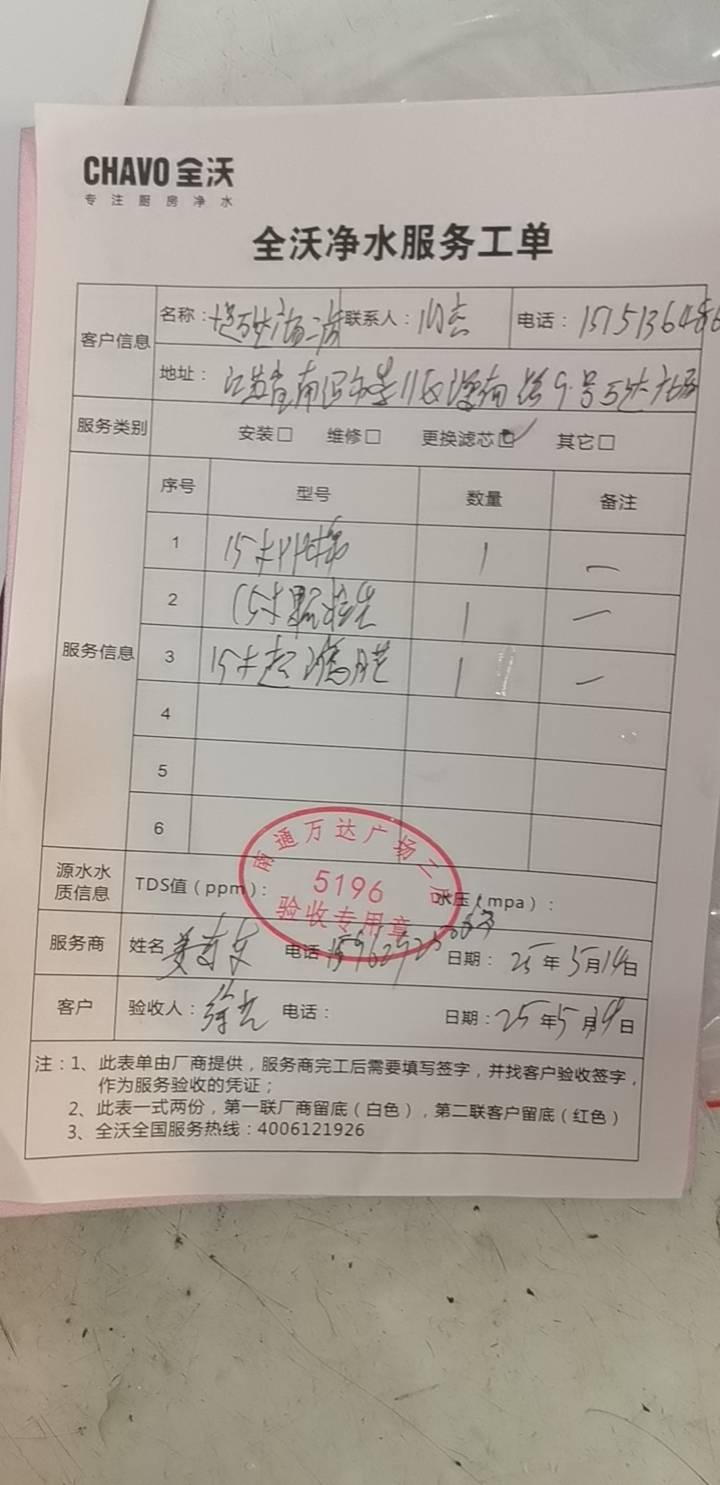 CHAVO 全沃
专注厨房净水
全沃净水服务工单
客户信息 名称： 万达广场二店 联系人： 电话：
地址： 江苏省南通市 9号万达广场
服务类别 安装□ 维修□ 更换滤芯☑ 其它□
服务信息
序号 型号 数量 备注
1 15寸PP棉 1 一
2 15寸颗粒炭 1 一
3 15寸超滤膜 1 一
4
5
6
南通万达广场二店
5196
验收专用章
源水水质信息 TDS值（ppm）： 水压（mpa）：
服务商 姓名 电话 日期： 25年5月14日
客户 验收人： 徐 电话： 日期：25年5月 日
注：1、此表单由厂商提供，服务商完工后需要填写签字，并找客户验收签字，
作为服务验收的凭证；
2、此表一式两份，第一联厂商留底（白色），第二联客户留底（红色）
3、全沃全国服务热线：4006121926